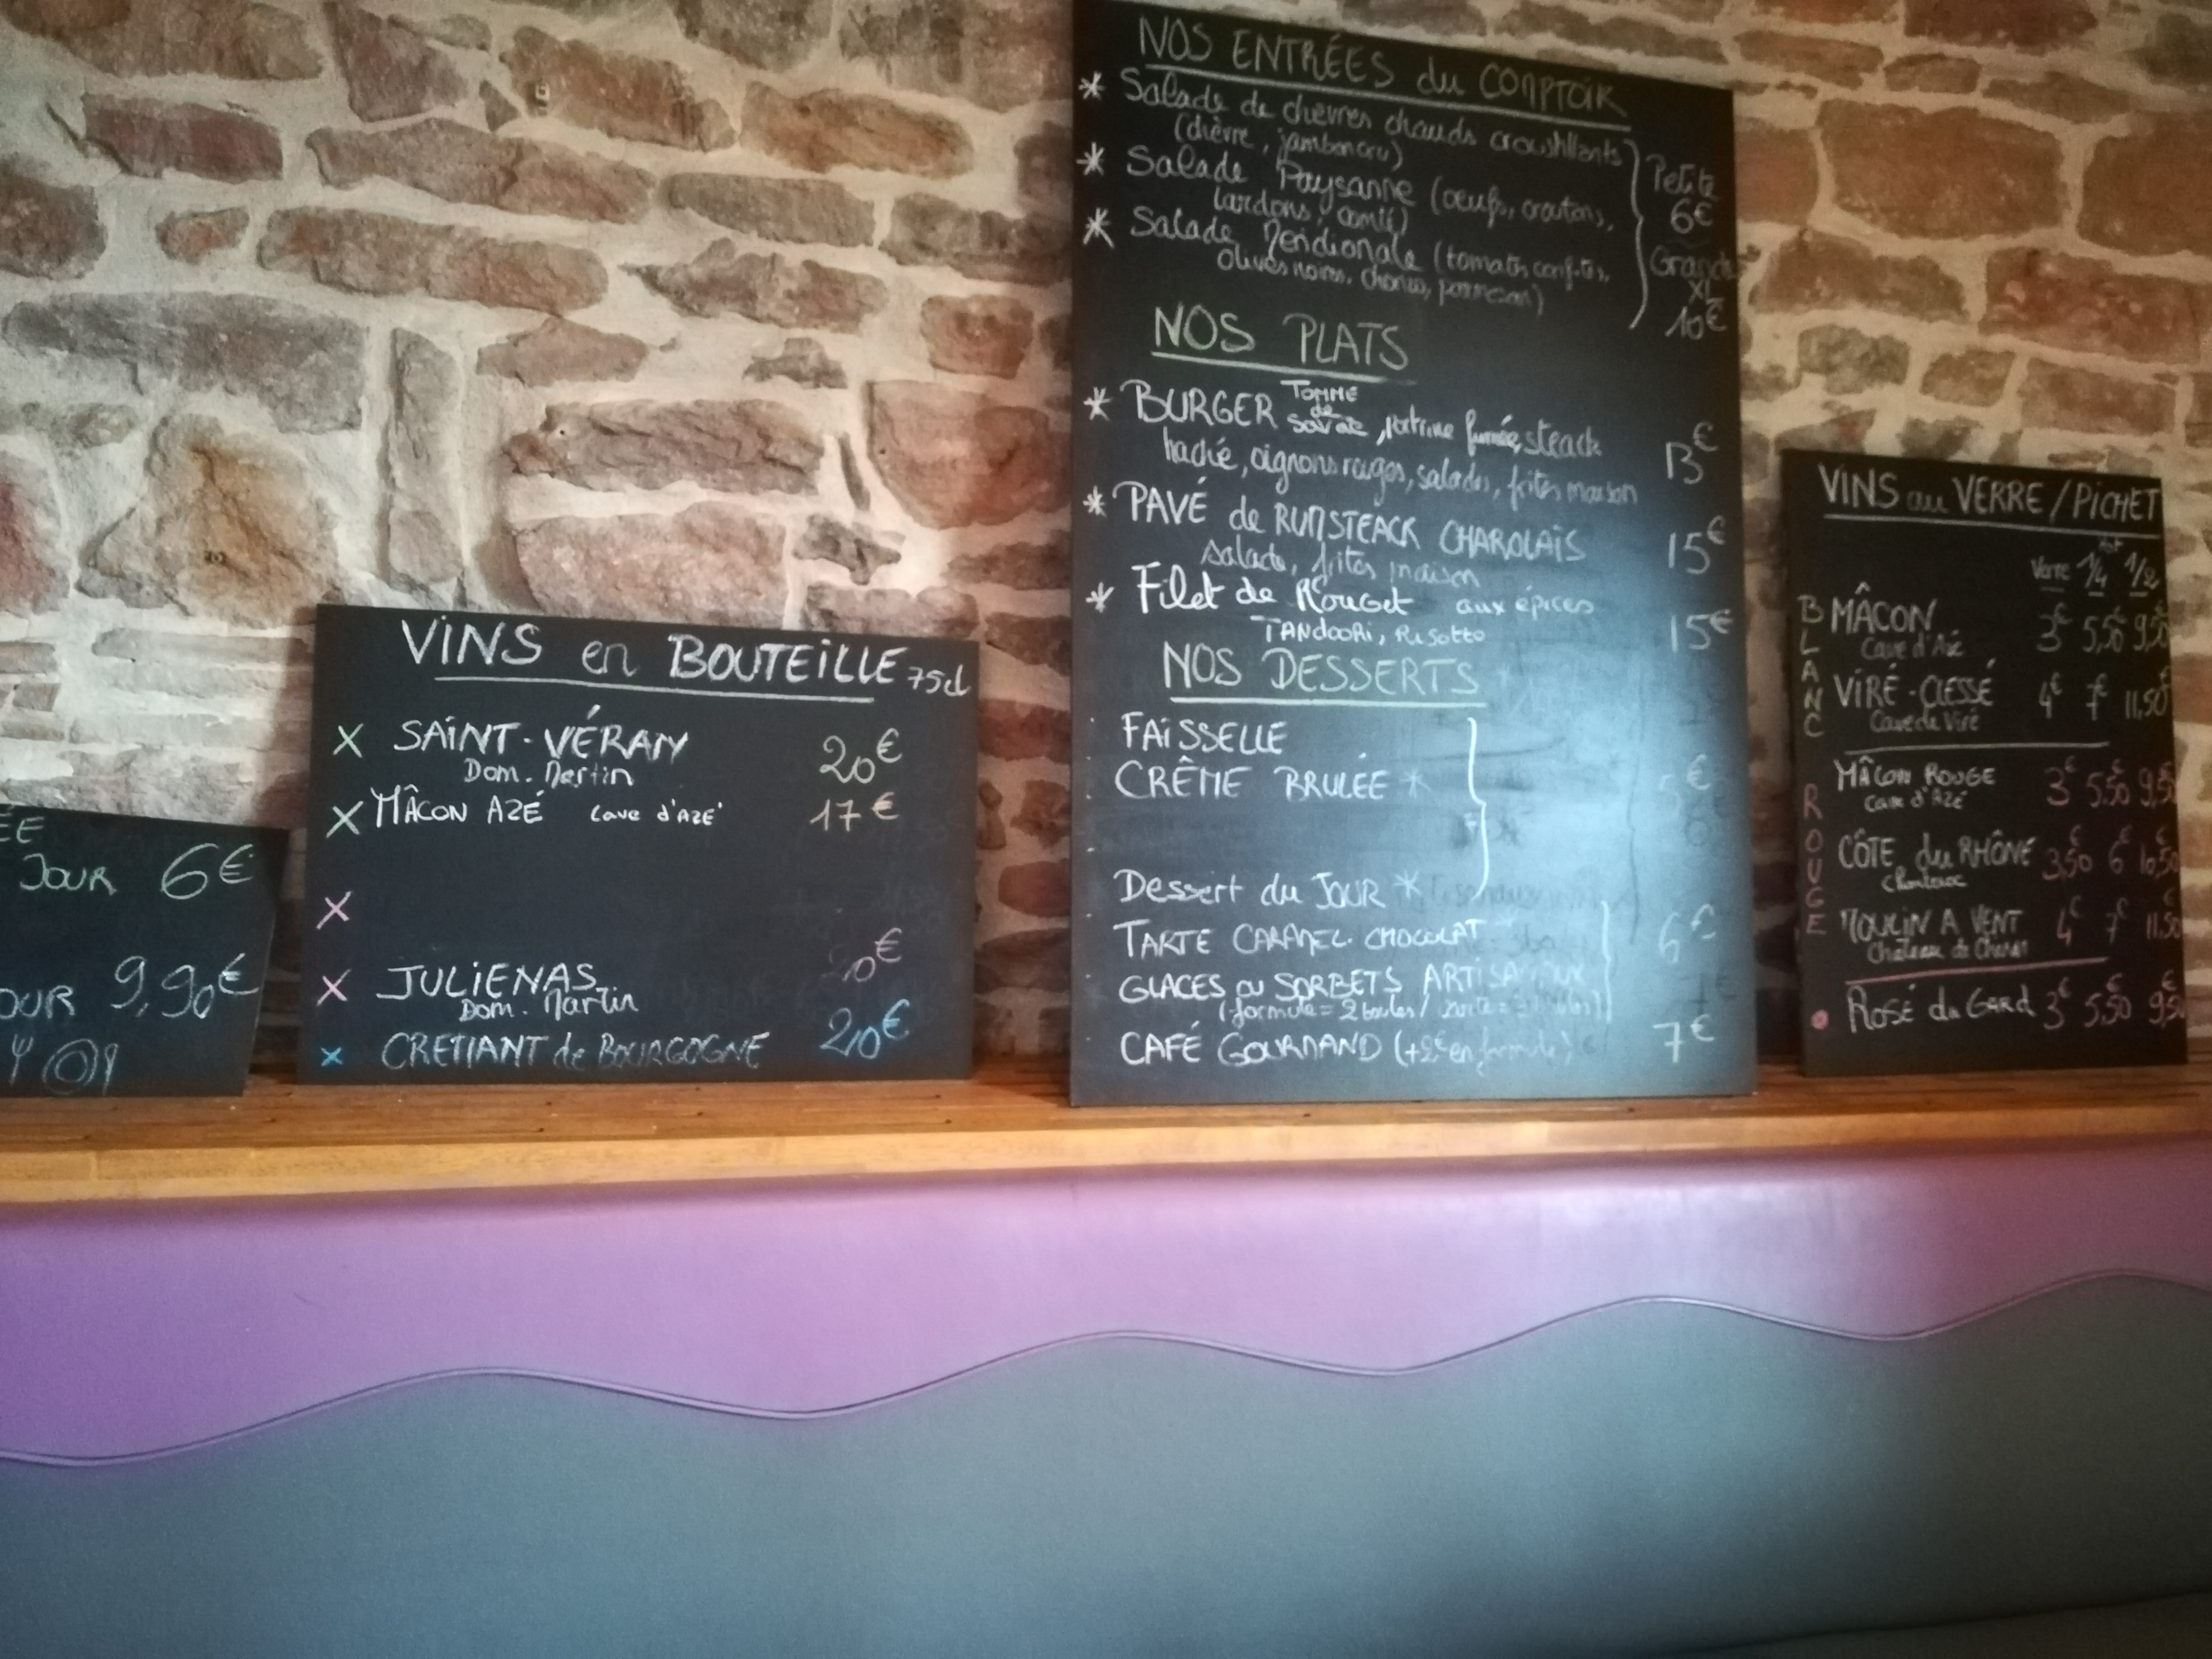 ÉE
JOUR 6€
OUR 9,90€
VINS en BOUTEILLE 75cl
X SAINT-VÉRAN 20€
Dom. Martin
X MÂCON AZÉ cave d'AZÉ 17€
X
X JULIENAS 20€
Dom. Martin
X CREMANT de BOURGOGNE 20€
NOS ENTRÉES du COMPTOIR
* Salade de chèvres chauds croustillants
(chèvre, jambon cru)
* Salade Paysanne (oeufs, croutons,
lardons, comté)
* Salade Meridionale (tomates confites,
olives noires, chorizo, parmesan)
Petite
6€
Grande
XL
10€
NOS PLATS
* BURGER Tomme de Savoie, poitrine fumée, steack
haché, oignons rouges, salades, frites maison 13€
* PAVÉ de RUMSTEACK CHAROLAIS 15€
salade, frites maison
* Filet de Rouget aux épices
TANDOORI, Risotto 15€
NOS DESSERTS
FAISSELLE
CRÊME BRULÉE * 5€
Dessert du JOUR *
TARTE CARAMEL CHOCOLAT 6€
GLACES ou SORBETS ARTISANAUX
(formule = 2 boules /
CAFÉ GOURMAND (+2€ en formule) 7€
VINS au VERRE / PICHET
Verre 1/4 1/2
BLANC
MÂCON 3€ 5,50€ 9,50€
Cave d'Azé
VIRÉ-CLESSÉ 4€ 7€ 11,50€
Cave de Viré
ROUGE
MÂCON ROUGE 3€ 5,50€ 9,50€
Cave d'Azé
CÔTE du RHÔNE 3,50€ 6€ 10,50€
MOULIN A VENT 4€ 7€ 11,50€
Château de
Rosé du Gard 3€ 5,50€ 9,50€